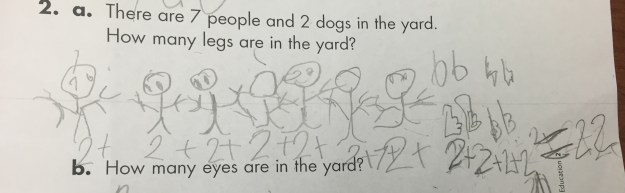 2. a. There are 7 people and 2 dogs in the yard.
How many legs are in the yard?
2+ 2+2+2+2+2+2+ 2+2+2+2=22
b. How many eyes are in the yard?
Education